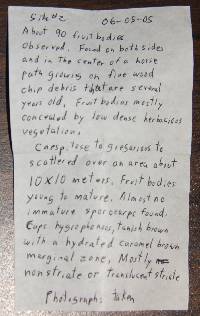 Site #2 06-05-05
About 90 fruit bodies
observed. Found on both sides
and in the center of a horse
path growing on fine wood
chip debris that are several
years old. Fruit bodies mostly
concealed by low dense herbacious
vegetation.
Caespitose to gregarious to
scattered over an area about
10X10 meters. Fruit bodies
young to mature. Almost no
immature sporocarps found.
Caps: hygrophanous, tanish brown
with a hydrated caramel brown
marginal zone, Mostly
nonstriate or translucent striate
Photographs taken